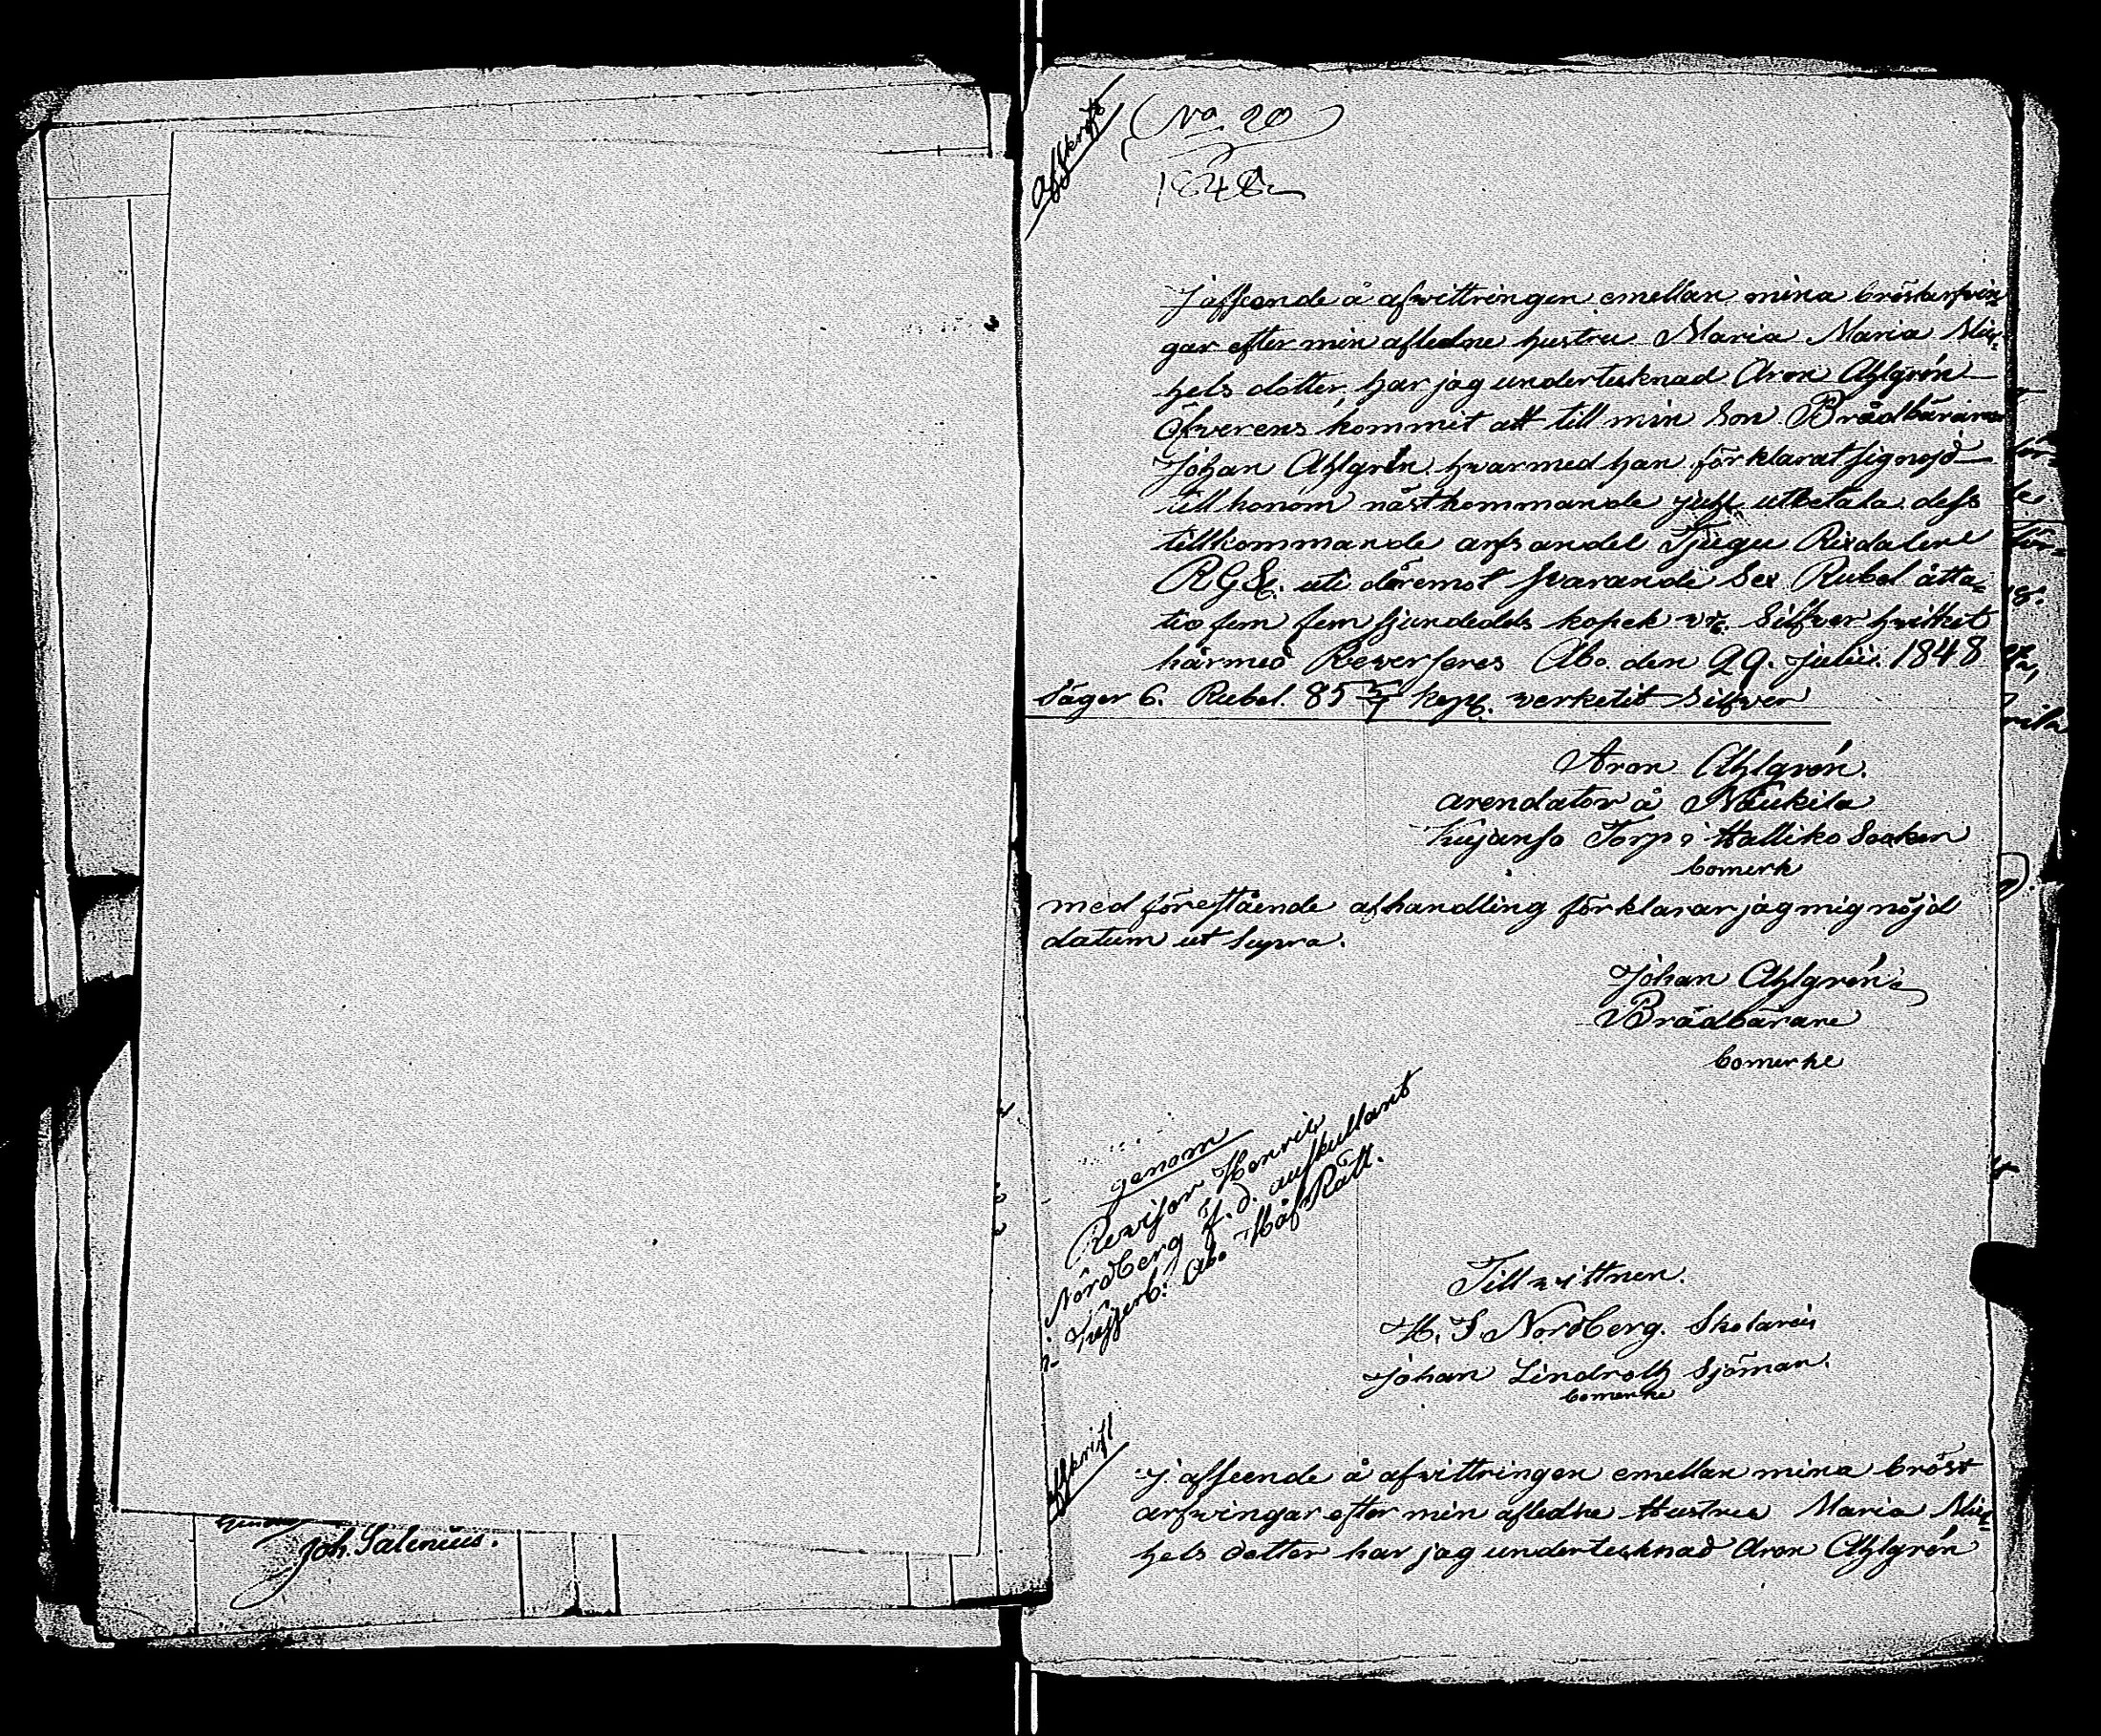 Joh. Salenius.
Afskrift
No 20
1848
J afseende å afwittringen emellan mina bröstarfwin
gar efter min aflidne hustru Maria Maria Mic-
hels dotter, har jag undertecknad Aron Ahlgrén
öfwerens kommit att till min Son Brädbäraren
Johan Ahlgrén hwarmed han förklarat sig nöjd
till honom nästkommande utbetala dess
tillkommande arfs andel Tjugu Rixdaler
RGS. uti däremot swarande Sex Rubel åtta-
tio fem fem sjundedels kopek Silfver hvilket
härmed Reverseras Åbo den 29. Julii. 1848
Säger 6. Rubel. 85 5/7 kop. verketit Silfver
Aron Ahlgrén.
arendator å Naukila
Kujanso Torp i Halliko Socken
bomerk
med förestående afhandling förklarar jag mig nöjd
datum ut Supra.
Johan Ahlgrén
Brädbärare
bomerke
genom
Revisor Henric
Nordberg f. d. auskultant
i Åbo HåfRätt.
Till wittnen.
H. J. Nordberg.
Johan Lindroth Sjöman.
bomerke
afskrift
J afseende å afwittringen emellan mina bröst
arfwingar efter min aflidne Hustru Maria Mic-
hels dotter har jag undertecknad Aron Ahlgrén